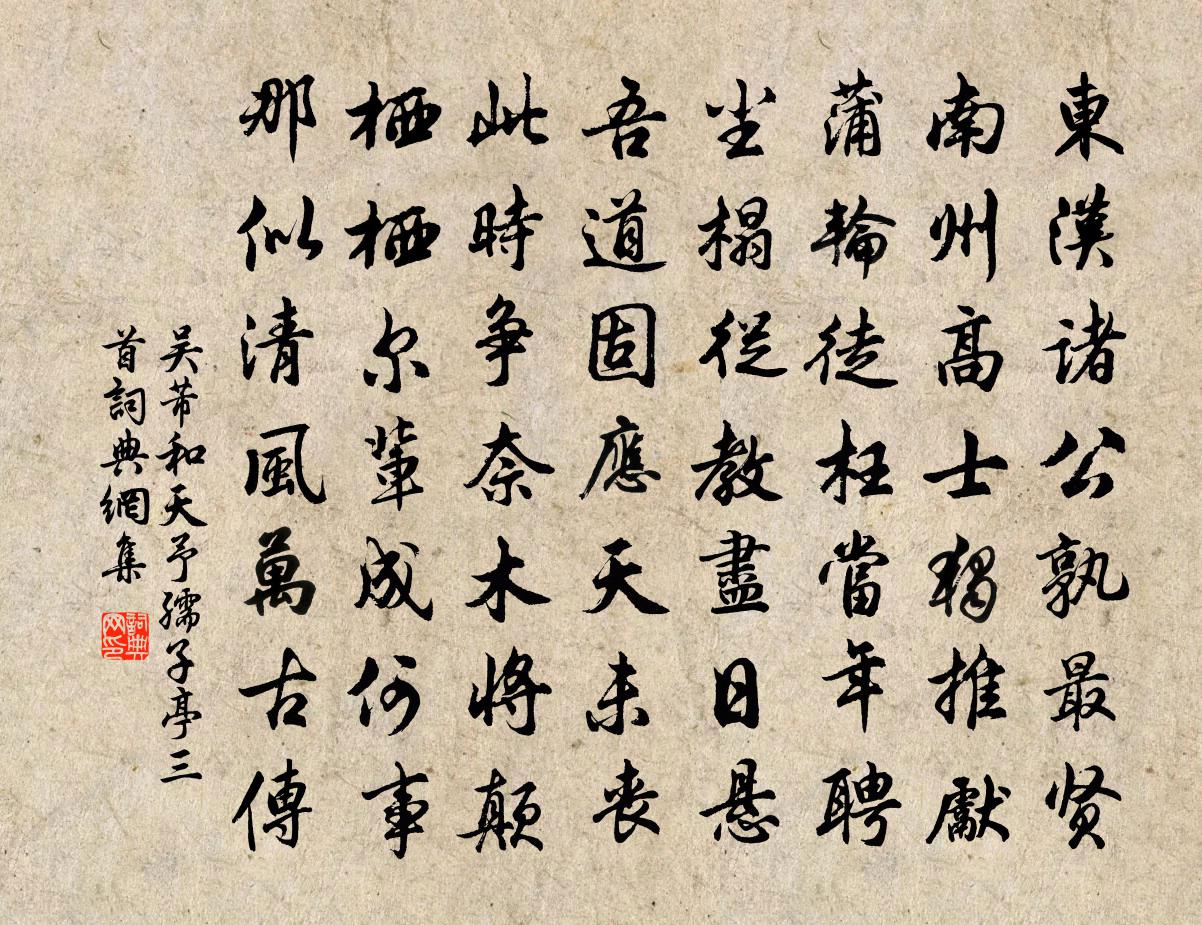 東漢諸公孰最贤
南州高士獨推獻
蒲輪徒枉當年聘
坐榻從教盡日悬
吾道固應天未丧
此時争奈木將颠
栖栖尔輩成何事
那似清風萬古傳
吴芾和天予孺子亭三
首詞典網集
詞典
网印